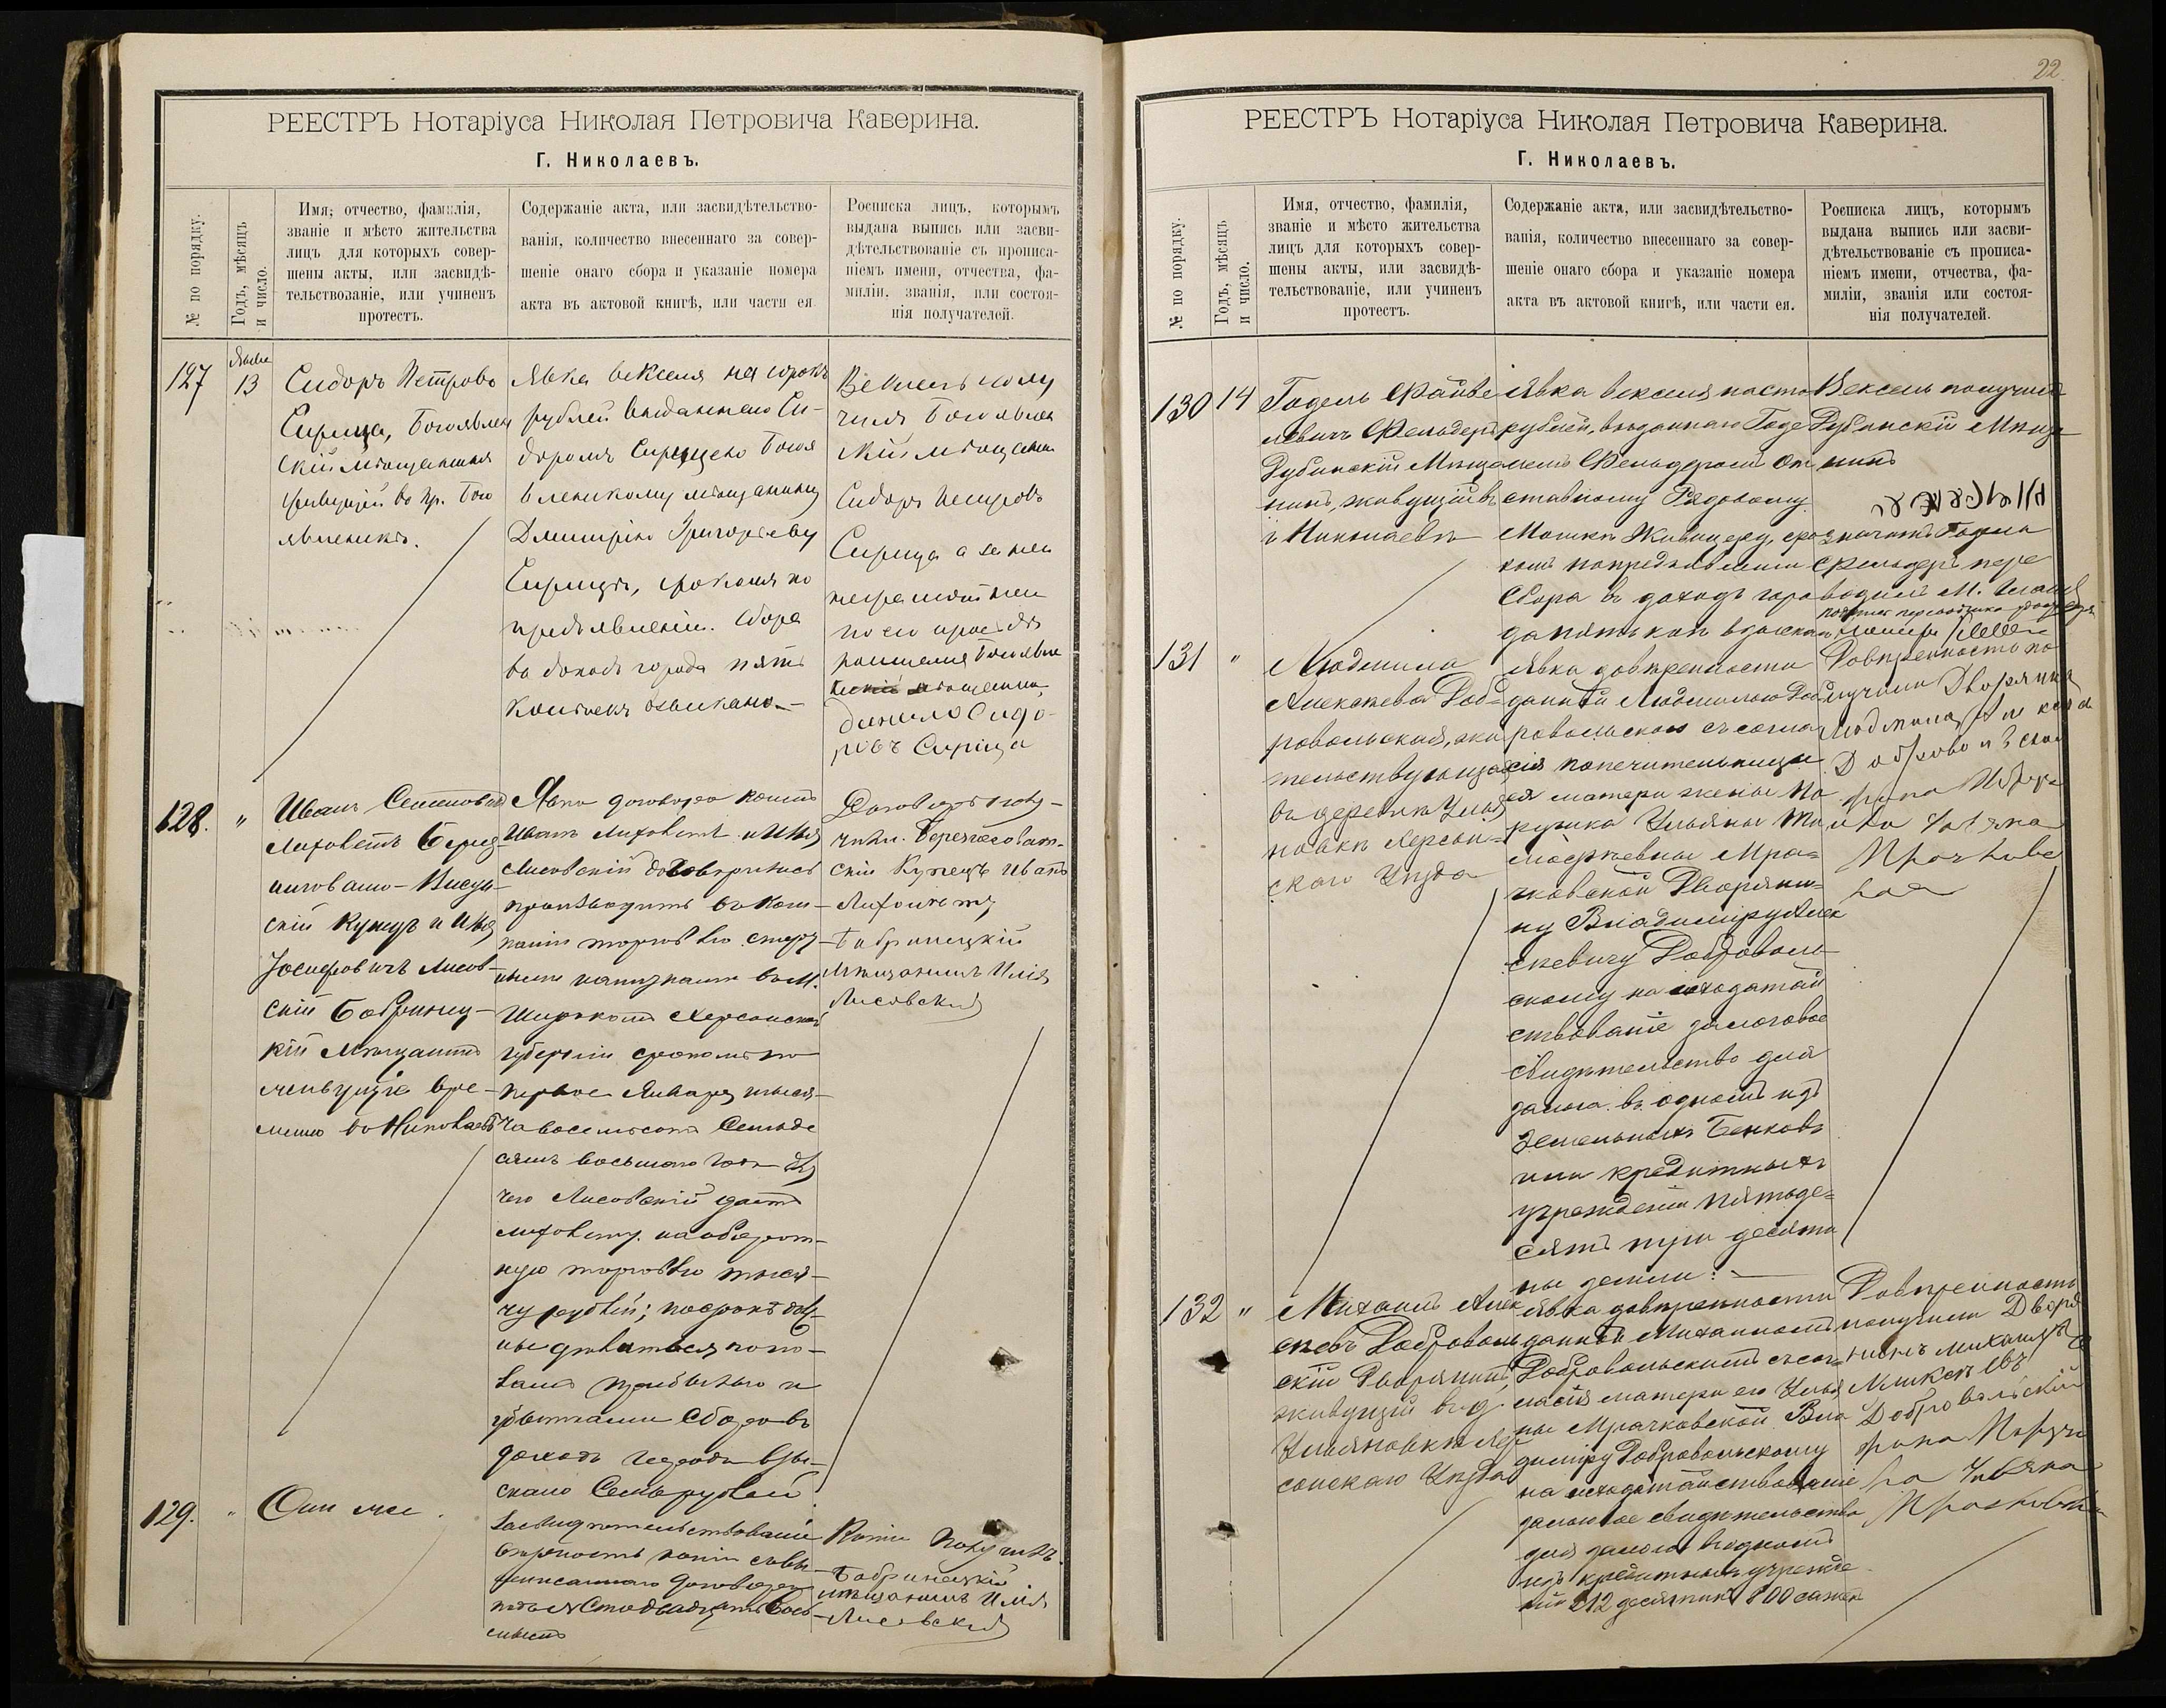 РЕЕСТРЪ Нотаріуса Николая Петровича Каверина.
Г. Николаевъ.
№ по порядку.
Годъ, мѣсяцъ
и число.
Имя, отчество, фамилія,
званіе и мѣсто жительства
лицъ для которыхъ совер-
шены акты, или засвидѣ-
тельствованіе, или учиненъ
протестъ.
Содержаніе акта, или засвидѣтельство-
ванія, количество внесеннаго за совер-
шеніе онаго сбора и указаніе номера
акта въ актовой книгѣ, или части ея
Росписка лицъ, которымъ
выдана выпись или засви-
дѣтельствованіе съ прописа-
ніемъ имени, отчества, фа-
миліи, званія, или состоя-
нія получателей.
127
13
Сидоръ Петровъ
Сирица, Богоявлен
скій мѣщанинъ
живущій въ пр. Бого
явленскѣ.
Явка векселя на сорокъ
рублей выданнаго Си-
доромъ Сирицею Богоя
вленскому мѣщанину
Димитрію Григорьеву
Сирицѣ, срокомъ по
предъявленіи. Сбора
въ доходъ города пять
копѣекъ взыскано.—
Вексель полу
чилъ Богоявлен
скій мѣщанинъ
Сидоръ Петровъ
Сирица а за него
неграмотнаго
по его просьбѣ
росписался Богоявле
нскій мѣщанинъ
Данило Сидо-
ровъ Сирица
128.
"
Иванъ Семеновичъ
Лихолетъ Берез-
нѣговато-Висун-
скій купецъ и Илья
Іосифовичъ Лисов-
скій Бобринец-
кій Мѣщанинъ
живущіе вре-
менно въ Николаевѣ
Явка договора коимъ
Иванъ Лихолетъ и Илья
Лисовскій договорились
производить въ ком-
паніи торговлю спирт-
ными напитками въ М.
Широкомъ Херсонской
губерніи срокомъ по
первое Января тысяч-
ча восемьсотъ семьде
сятъ восьмаго года для
чего Лисовскій даетъ
Лихолету на оборот-
ную торговлю тыся-
чу рублей; по срокѣ долж-
ны дѣлиться попо-
ламъ прибылью и
убытками Сбора въ
доходъ города взы-
скано Семь рублей
Договоръ полу-
чили. Березнеговат-
скій Купецъ Иванъ
Лихолетъ
Бобринецкій
Мѣщанинъ Илія
Лисовский
129.
"
Они же.
Засвидѣтельствованіе
вѣрности копіи съ вы-
шеписаннаго договора
подъ № Сто двадцать вось-
мымъ
Копію получилъ.
Бобринецкій
мѣщанинъ Илія
Лисовский
22
РЕЕСТРЪ Нотаріуса Николая Петровича Каверина.
Г. Николаевъ.
№ по порядку.
Годъ, мѣсяцъ
и число.
Имя, отчество, фамилія,
званіе и мѣсто жительства
лицъ для которыхъ совер-
шены акты, или засвидѣ-
тельствованіе, или учиненъ
протестъ.
Содержаніе акта, или засвидѣтельство-
ванія, количество внесеннаго за совер-
шеніе онаго сбора и указаніе номера
акта въ актовой книгѣ, или части ея.
Росписка лицъ, которымъ
выдана выпись или засви-
дѣтельствованіе съ прописа-
ніемъ имени, отчества, фа-
миліи, званія или состоя-
нія получателей.
130
14
Годель Файве
левичъ Фельдеръ
Дубинскій Мѣща
нинъ, живущій въ
г. Николаевѣ
Явка векселя на сто
рублей, выданнаго Годе
лемъ Фельдеромъ От
ставному Рядовому
сро
комъ по предъявленіи
Сбора въ доходъ горо
да пять коп взыскан
Вексель получилъ
Дубинскій Мѣща
нинъ
значитъ Годель
Фельдеръ пере
водилъ М.
131
"
Людмила
Алексѣева Доб-
ровольская, жи
тельствующая
въ деревнѣ Улья
новкѣ Херсон-
скаго Уѣзда
Явка довѣренности
данной Людмилою Доб
ровольскою съ согла
сія попечительницы
ея матери жены По
ручика Ульяны Ти
моѳѣевны Мра=
чковской Дворяни=
ну Владиміру Алек
сѣевичу Доброволь
скому на исходатай
ствованіе залоговое
свидѣтельство для
залога въ одномъ изъ
земельныхъ Банковъ
или кредитныхъ
учрежденій пятьде=
сятъ три десяти
ны земли:—
Довѣренность по
лучили Дворянка
Людмила Алексѣева
Добровольская
132
"
Михаилъ Алек
сѣевъ Доброволь
скій Дворянинъ,
живущій въ д.
Ульяновкѣ Хер
сонскаго Уѣзда
Явка довѣренности
данной Михаиломъ
Добровольскимъ съ сог=
ласія матери его Улья
ны Мрачковской Вла
диміру Добровольскому
на исходатайствованіе
залоговое свидѣтельство
для залога въ одномъ
изъ кредитныхъ учрежде
ній 212 десятинъ 800 сажен
Довѣренность
получили Дворя
нинъ Михаилъ
Алексѣевъ
Добровольскій